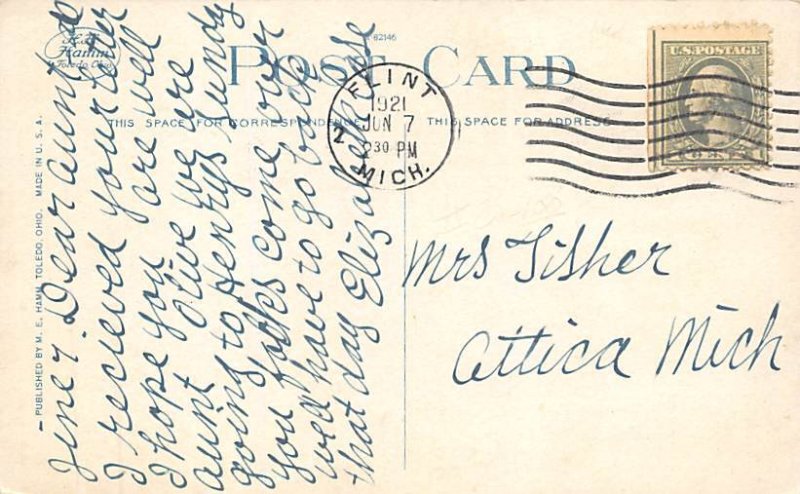 H.R.
Hamm
Toledo, Ohio
82146
POST CARD
THIS SPACE FOR CORRESPONDENCE
THIS SPACE FOR ADDRESS
FLINT
1921
JUN 7
2 30 PM
MICH.
2
U.S. POSTAGE
CENT
PUBLISHED BY M. E. HAMM, TOLEDO, OHIO. MADE IN U. S. A.
June 7. Dear aunt
I recieved your letter
I hope you are well
aunt Olive we are
going to Henrys Sunday
you folks come over
well have to go back
that day Elizabeth
Mrs Fisher
Attica Mich